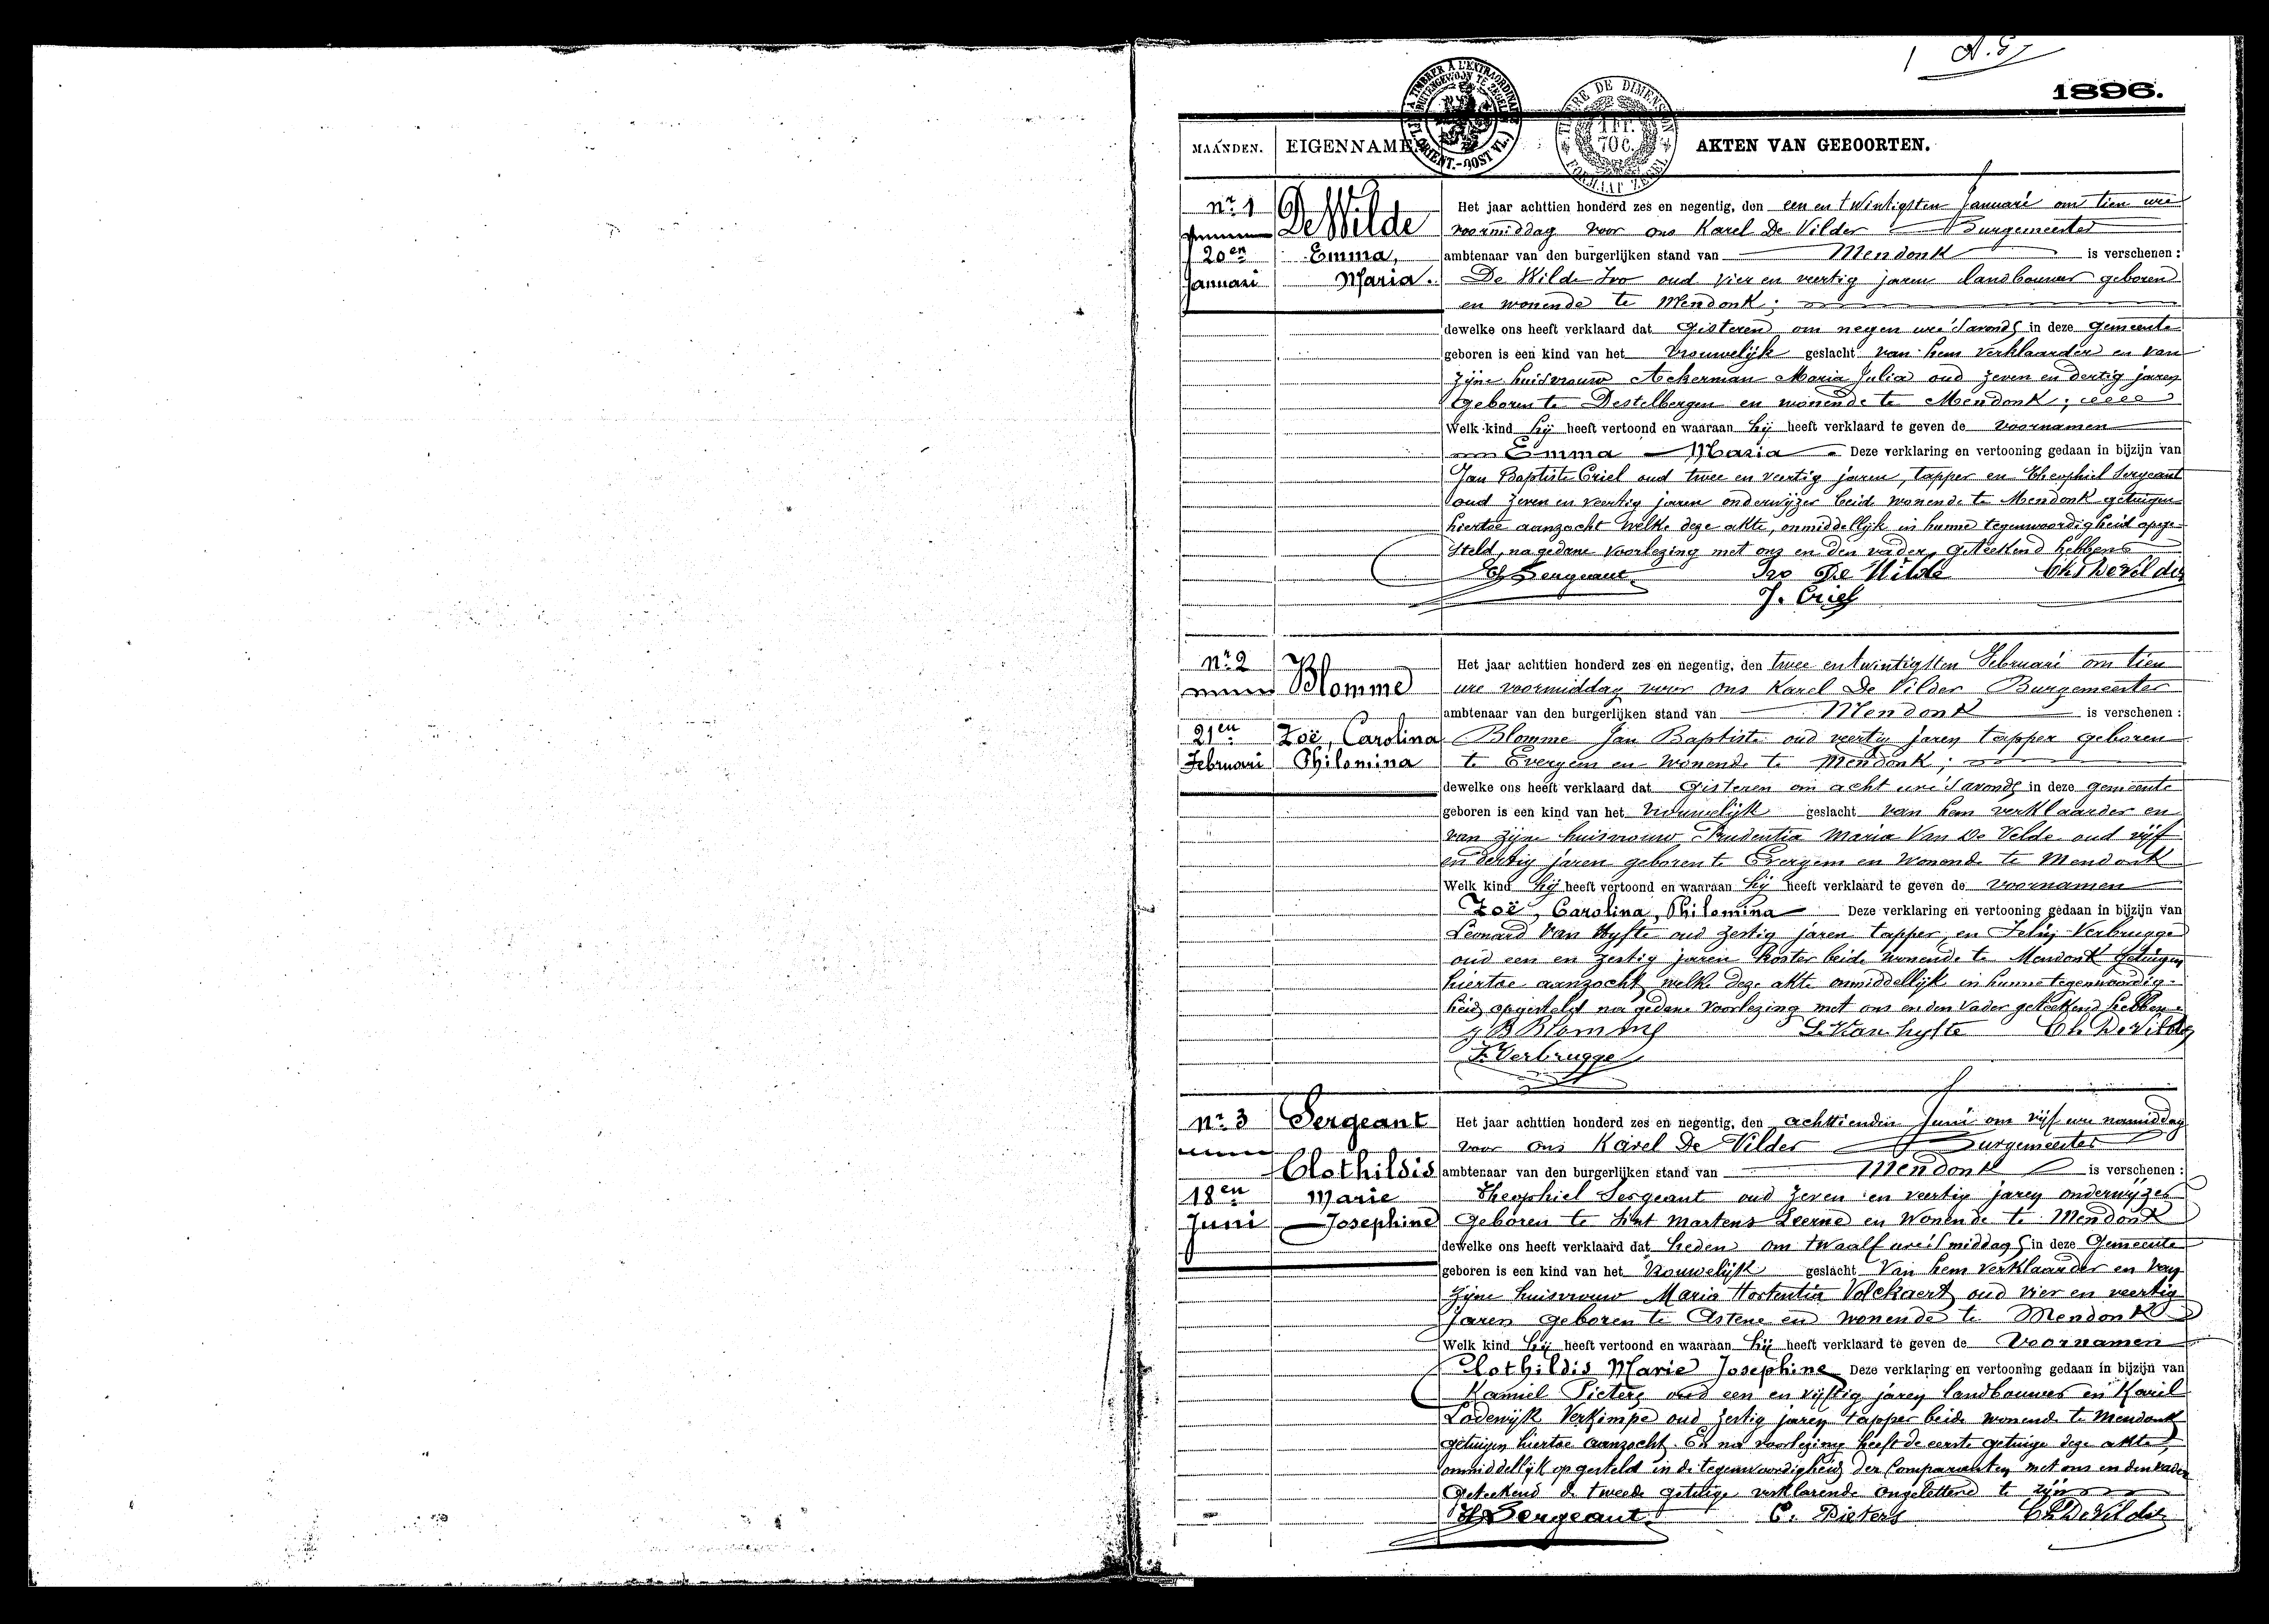 1 A.G.
1896.
A TIMBRER A L'EXTRAORDINAIRE
BUITENGEWOON TE ZEGELEN
FL. ORIENT.-OOST VL.(
TIMBRE DE DIMENSION
1 FR.
70 C.
FORMAAT ZEGEL
MAANDEN. EIGENNAME AKTEN VAN GEBOORTEN.
Nr. 1
20en
Januari
De Wilde
Emma,
Maria.
Het jaar achttien honderd zes en negentig, den een en twintigsten Januari om tien ure
voormiddag voor ons Karel De Vilder Burgemeester
ambtenaar van den burgerlijken stand van Mendonk is verschenen :
De Wilde Ivo oud vier en veertig jaren landbouwer geboren
en wonende te Mendonk ;
dewelke ons heeft verklaard dat gisteren om negen ure 's avonds in deze gemeente
geboren is een kind van het vrouwelijk geslacht van hem verklaarder en van
zijne huisvrouw Ackerman Maria Julia oud zeven en dertig jaren
geboren te Destelbergen en wonende te Mendonk ;
Welk kind hij heeft vertoond en waaraan hij heeft verklaard te geven de voornamen
Emma Maria Deze verklaring en vertooning gedaan in bijzijn van
Jan Baptiste Criel oud twee en veertig jaren, tapper en Theophiel Sergeant
oud zeven en veertig jaren onderwijzer beide wonende te Mendonk getuigen
hiertoe aanzocht welke deze akte, onmiddellijk in hunne tegenwoordigheid opge-
steld, na gedane voorlezing met ons en den vader, geteekend hebben
Th Sergeant Ivo De Wilde Ch. De Vilder
J. Criel
Nr. 2
21en
Februari
Blomme
Zoë, Carolina
Philomina
Het jaar achttien honderd zes en negentig, den twee en twintigsten Februari om tien
ure voormiddag voor ons Karel De Vilder Burgemeester
ambtenaar van den burgerlijken stand van Mendonk is verschenen :
Blomme Jan Baptiste oud veertig jaren tapper geboren
te Evergem en wonende te Mendonk ;
dewelke ons heeft verklaard dat gisteren om acht ure 's avonds in deze gemeente
geboren is een kind van het vrouwelijk geslacht van hem verklaarder en
van zijne huisvrouw Prudentia Maria Van De Velde oud vijf
en dertig jaren geboren te Evergem en wonende te Mendonk
Welk kind hij heeft vertoond en waaraan hij heeft verklaard te geven de voornamen
Zoë, Carolina, Philomina Deze verklaring en vertooning gedaan in bijzijn van
Leonard Van Hyfte oud zestig jaren tapper, en Felix Verbrugge
oud een en zestig jaren koster beide wonende te Mendonk getuigen
hiertoe aanzocht welke deze akte onmiddellijk in hunne tegenwoordig-
heid opgesteld na gedane voorlezing met ons en den vader geteekend hebben
J B Blomme L. Van hyfte Ch. De Vilder
F. Verbrugge
Nr. 3
18en
Juni
Sergeant
Clothildis
Marie
Josephine
Het jaar achttien honderd zes en negentig, den achttienden Juni om vijf ure namiddag
voor ons Karel De Vilder Burgemeester
ambtenaar van den burgerlijken stand van Mendonk is verschenen :
Theophiel Sergeant oud zeven en veertig jaren onderwijzer
geboren te Sint Martens Leerne en wonende te Mendonk
dewelke ons heeft verklaard dat heden om twaalf ure 's middags in deze Gemeente
geboren is een kind van het Vrouwelijk geslacht van hem verklaarder en van
zijne huisvrouw Maria Hortentia Volckaert oud vier en veertig
jaren geboren te Astene en wonende te Mendonk
Welk kind hij heeft vertoond en waaraan hij heeft verklaard te geven de Voornamen
Clothildis Marie Josephine Deze verklaring en vertooning gedaan in bijzijn van
Kamiel Pieters oud een en vijftig jaren landbouwer en Karel
Lodewijk Verkimpe oud zestig jaren tapper beide wonende te Mendonk
getuigen hiertoe aanzocht. En na voorlezing heeft de eerste getuige deze akte,
onmiddellijk opgesteld in de tegenwoordigheid der Comparanten met ons en den vader
geteekend de tweede getuige verklarende ongeletterd te zijn
Th Sergeant C. Pieters Ch. De Vilder